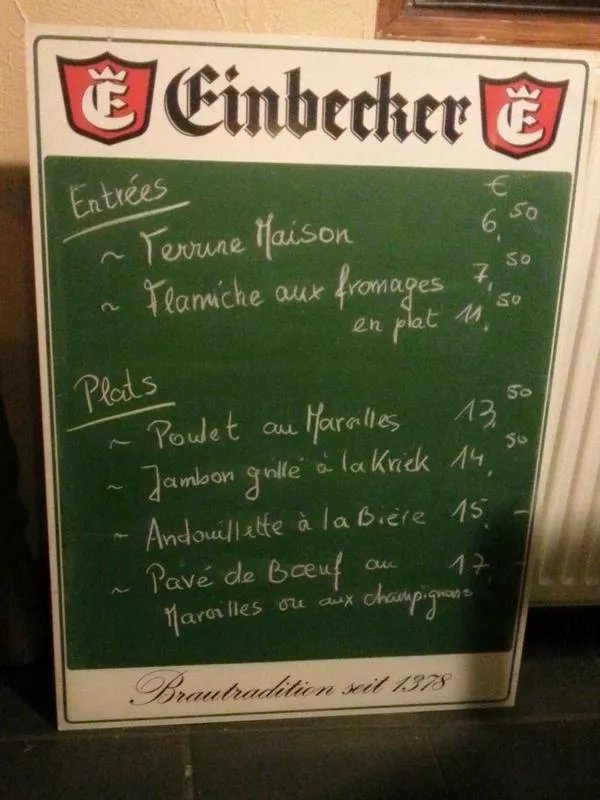 E Einbecker E
Entrées €
~ Terrine Maison 6,50
~ Flamiche aux fromages 7,50
en plat 11,50
Plats
~ Poulet au Maroilles 13,50
~ Jambon grillé à la Kriek 14,50
~ Andouillette à la Bière 15,-
~ Pavé de Bœuf au 17,
Maroilles ou aux champignons
Brautradition seit 1378